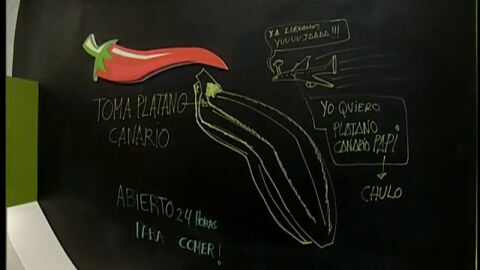 YA LLEGAMOS
YUUUUJUUUU!!!
TOMA PLATANO
CANARIO
YO QUIERO
PLATANO
CANARIO PAPi
CHULO
ABIERTO 24 HORAS
PARA COMER!